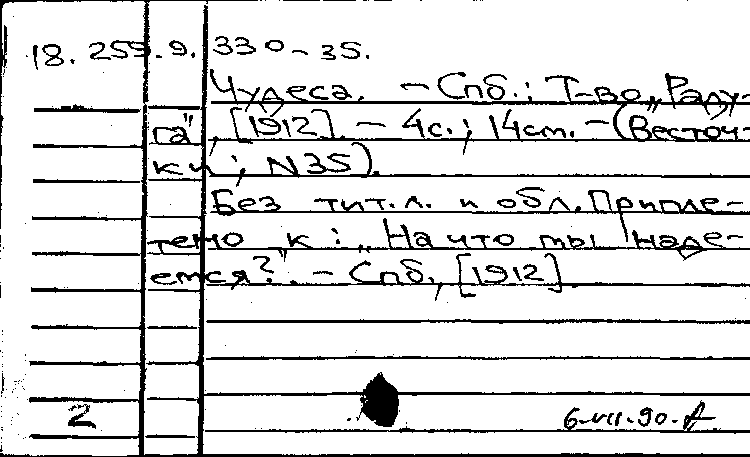 18.259.9.330-35.
Чудеса. - Спб.: Т-во „Раду-
га", [1912]. - 4с.; 14см. - (Весточ-
ки; N35).
Без тит.л. и обл. Припле-
тено к: „На что ты наде-
ется?". - Спб., [1912]
2
6.VII.90.